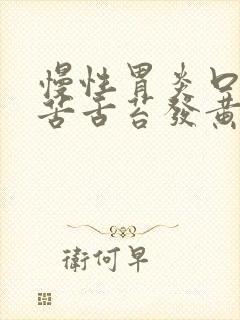 慢性胃炎口
苦舌苔發黃
衛何早